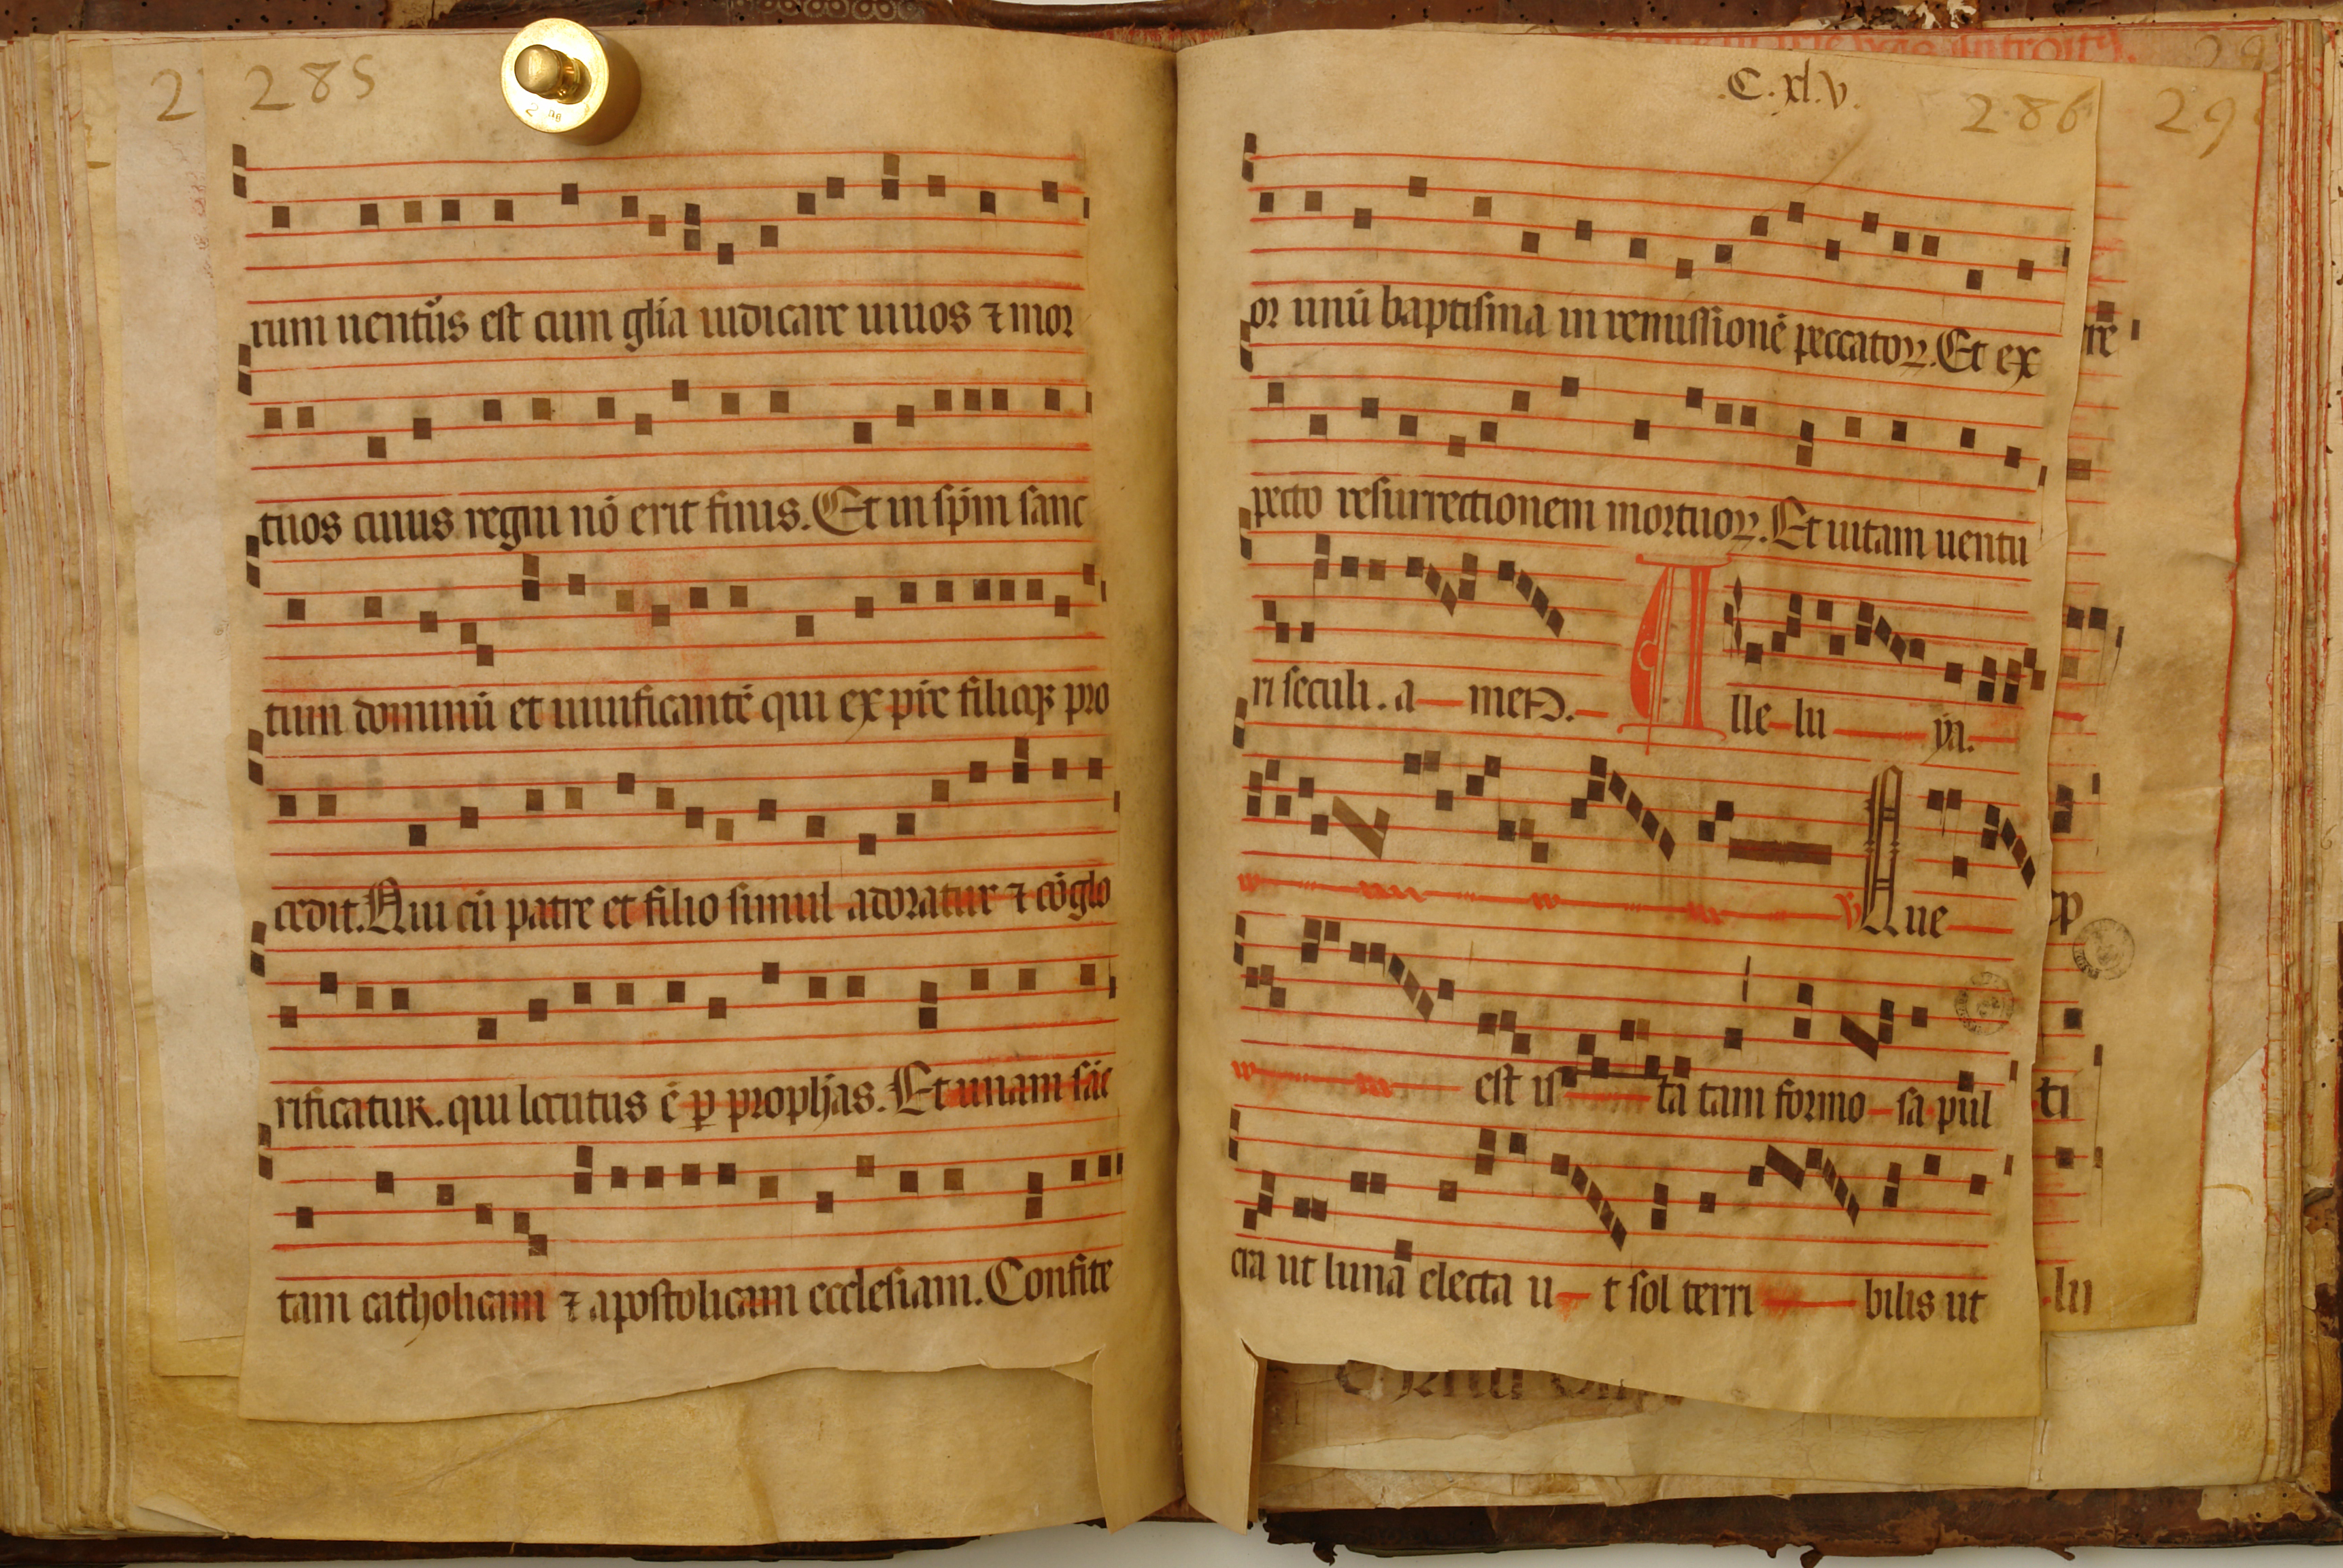 285
rum uentūs est cum glīa iudicare uiuos ⁊ mor
tuos cuius regni nō erit finis. Et in sp̄m sanc
tum dominū et uiuificantē qui ex pr̄e filioqꝫ pro
cedit. Qui cū patre et filio simul adoratur ⁊ cōglo
rificatur. qui locutus ē ꝑ prophās. Et unam sāc
tam catholicam ⁊ apostolicam ecclesiam. Confite
.C.xl.v.
286
or unū baptisma in remissionē peccatoꝝ. Et ex
pecto resurrectionem mortuoꝝ. Et uitam uentu
ri seculi. a men. Alle lu ya.
℣ Que
est is ta tam formo sa pul
cra ut luna electa u t sol terri bilis ut
re
ti
lu